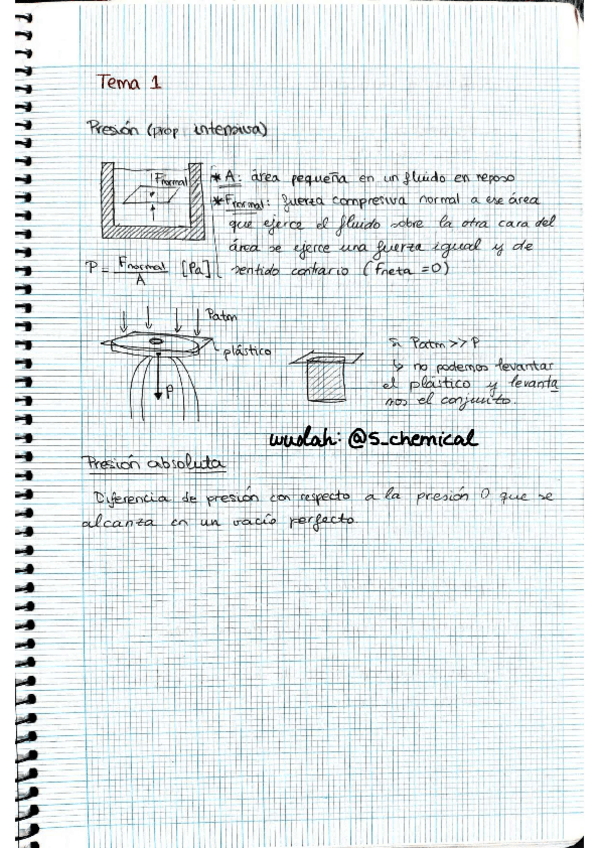 Tema 1
Presión (prop. intensiva)
Fnormal
* A: área pequeña en un fluido en reposo
* Fnormal: fuerza compresiva normal a ese área
que ejerce el fluido sobre la otra cara del
área se ejerce una fuerza igual y de
sentido contrario (Fneta = 0)
P = Fnormal / A [Pa]
Patm
plástico
P
si Patm >> P
↳ no podemos levantar
el plástico y levanta
mos el conjunto.
wuolah: @s_chemical
Presión absoluta
Diferencia de presión con respecto a la presión 0 que se
alcanza en un vacío perfecto.